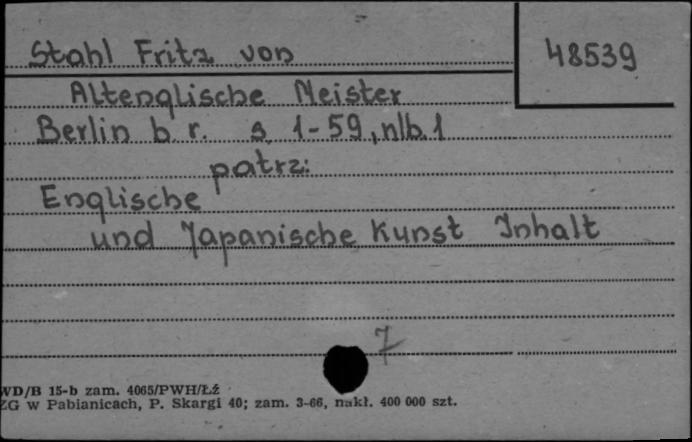 Stahl Fritz von
48539
Altenglische Meister
Berlin b. r. s. 1-59, nlb. 1
patrz:
Englische
und Japanische Kunst Inhalt
7
WD/B 15-b zam. 4065/PWH/Łź
ZG w Pabianicach, P. Skargi 40; zam. 3-66, nakł. 400 000 szt.